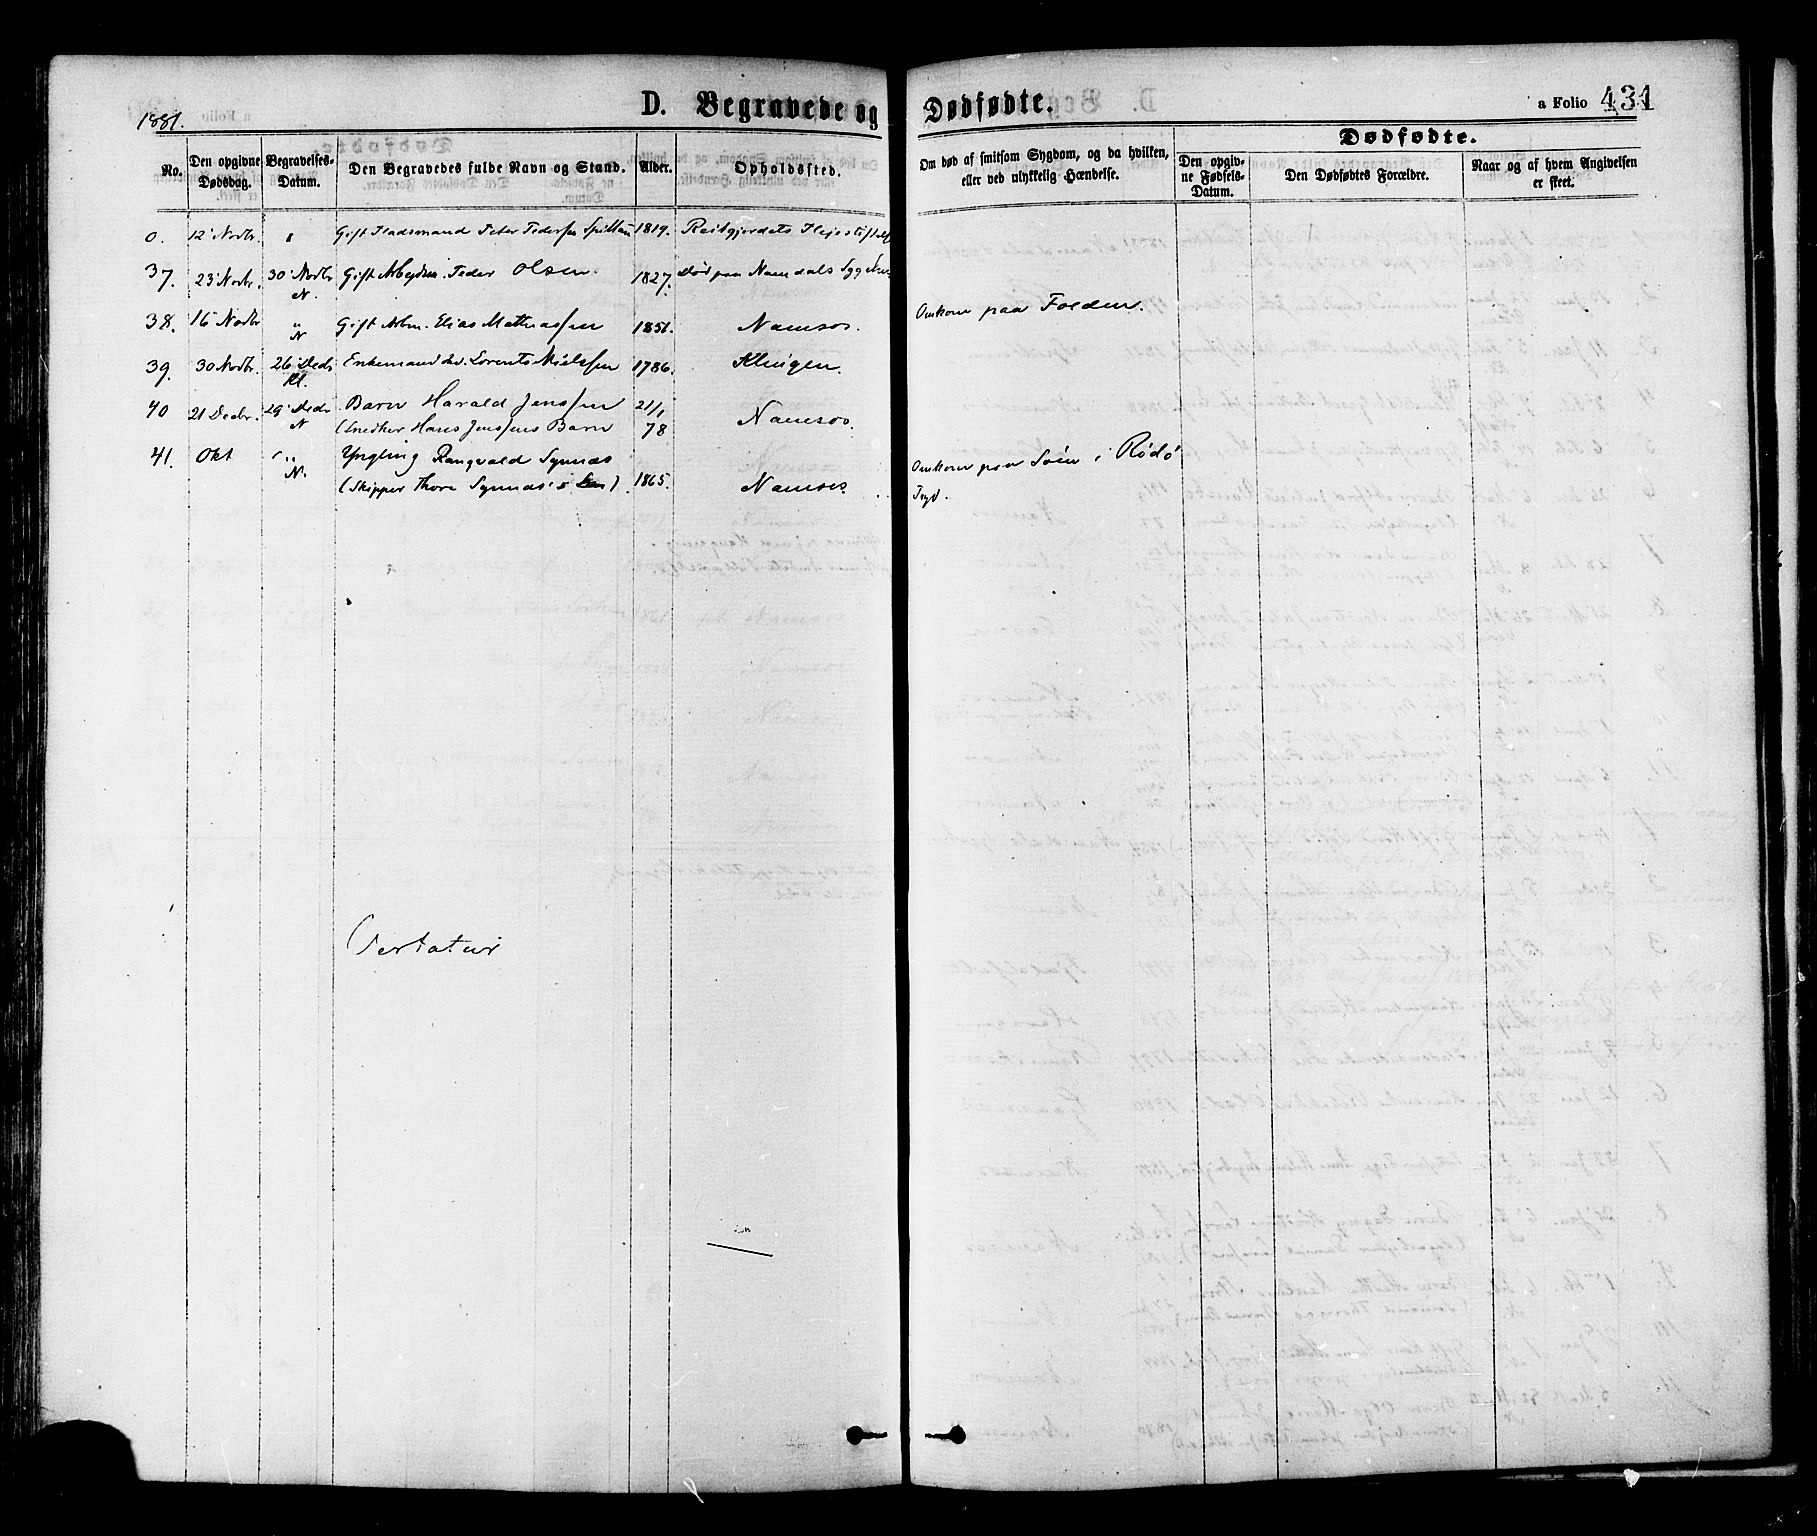 1881.
D. Begravede og Dødfødte.
a Folio 431
No.
Den opgivne Dødsdag.
Begravelses-Datum.
Den Begravedes fulde Navn og Stand.
Alder.
Opholdssted.
Om død af smitsom Sygdom, og da hvilken, eller ved ulykkelig Hændelse.
Dødfødte.
Den opgivne Fødsels-Datum.
Den Dødfødtes Forældre.
Naar og af hvem Angivelsen er skeet.
0. 12' Novbr. " Gift Pladsmand Peter Pedersen 1819.
37. 23' Novbr. 30' Novbr N. Gift Arbejdsm. Peder Olsen. 1827. Død paa Namdals Sygehus
38. 16' Novbr " N Gift Arbm. Elias Mathiassen 1851. Namsos. Omkom paa Folden.
39. 30 Novbr. 26' Decbr Kl. Enkemand Lorents Nielssen 1786. Klingen.
40 21 Decbr. 29' Decbr N Barn Harald Jenssen 21/1
(Snedker Hans Jenssens Barn 78 Namsos.
41. Okt " N. Yngling Rangvald Synnæs
(Skipper Thore Synnæs's Søn). 1865. Namsos. Omkom paa Søen i Rødø
Vertatur